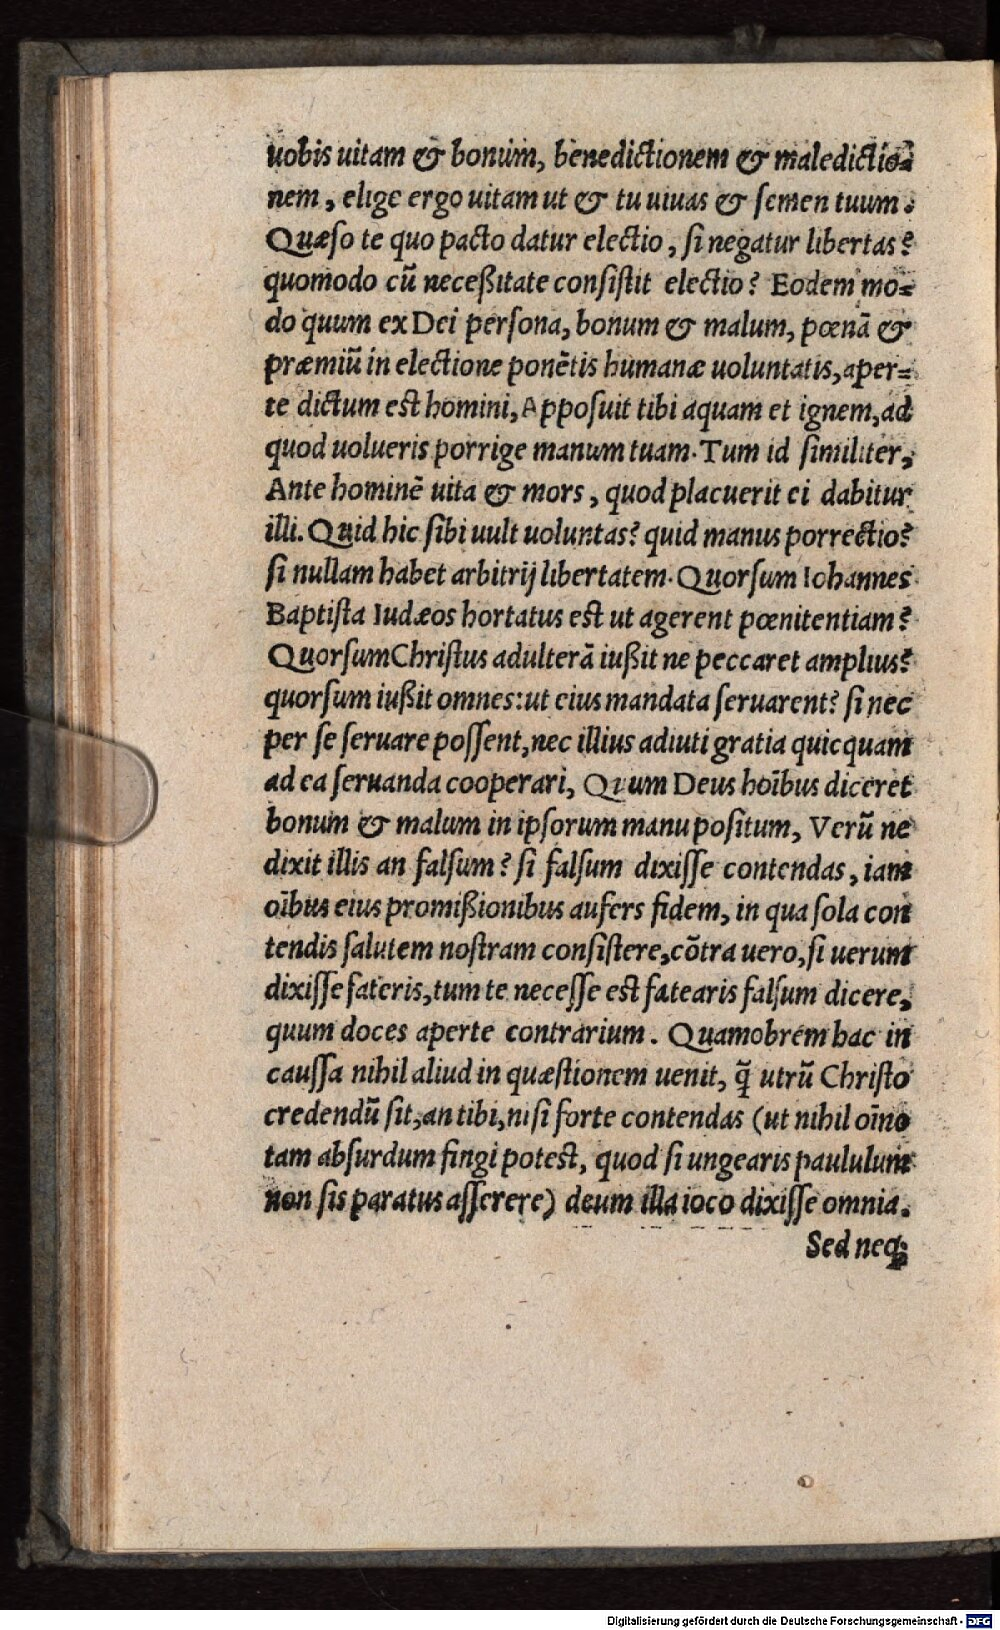 uobis uitam & bonum, benedictionem & maledictio=
nem, elige ergo uitam ut & tu uiuas & semen tuum.
Quæso te quo pacto datur electio, si negatur libertas?
quomodo cũ neceßitate consistit electio? Eodem mo=
do quum ex Dei persona, bonum & malum, pœnã &
præmiũ in electione ponẽtis humanæ uoluntatis, aper=
te dictum est homini, Apposuit tibi aquam et ignem, ad
quod uolueris porrige manum tuam. Tum id similiter,
Ante hominẽ uita & mors, quod placuerit ei dabitur
illi. Quid hic sibi uult uoluntas? quid manus porrectio?
si nullam habet arbitrij libertatem. Quorsum Iohannes
Baptista Iudæos hortatus est ut agerent pœnitentiam?
Quorsum Christus adulterã iußit ne peccaret amplius?
quorsum iußit omnes: ut eius mandata seruarent? si nec
per se seruare possent, nec illius adiuti gratia quicquam
ad ea seruanda cooperari, Quum Deus hoĩbus diceret
bonum & malum in ipsorum manu positum, Verũ ne
dixit illis an falsum? si falsum dixisse contendas, iam
oĩbus eius promißionibus aufers fidem, in qua sola con
tendis salutem nostram consistere, cõtra uero, si uerum
dixisse fateris, tum te necesse est fatearis falsum dicere,
quum doces aperte contrarium. Quamobrem hac in
caussa nihil aliud in quæstionem uenit, q̃ utrũ Christo
credendũ sit, an tibi, nisi forte contendas (ut nihil oĩno
tam absurdum fingi potest, quod si ungearis paululum
non sis paratus asserere) deum illa ioco dixisse omnia.
Sed neq;
Digitalisierung gefördert durch die Deutsche Forschungsgemeinschaft - DFG